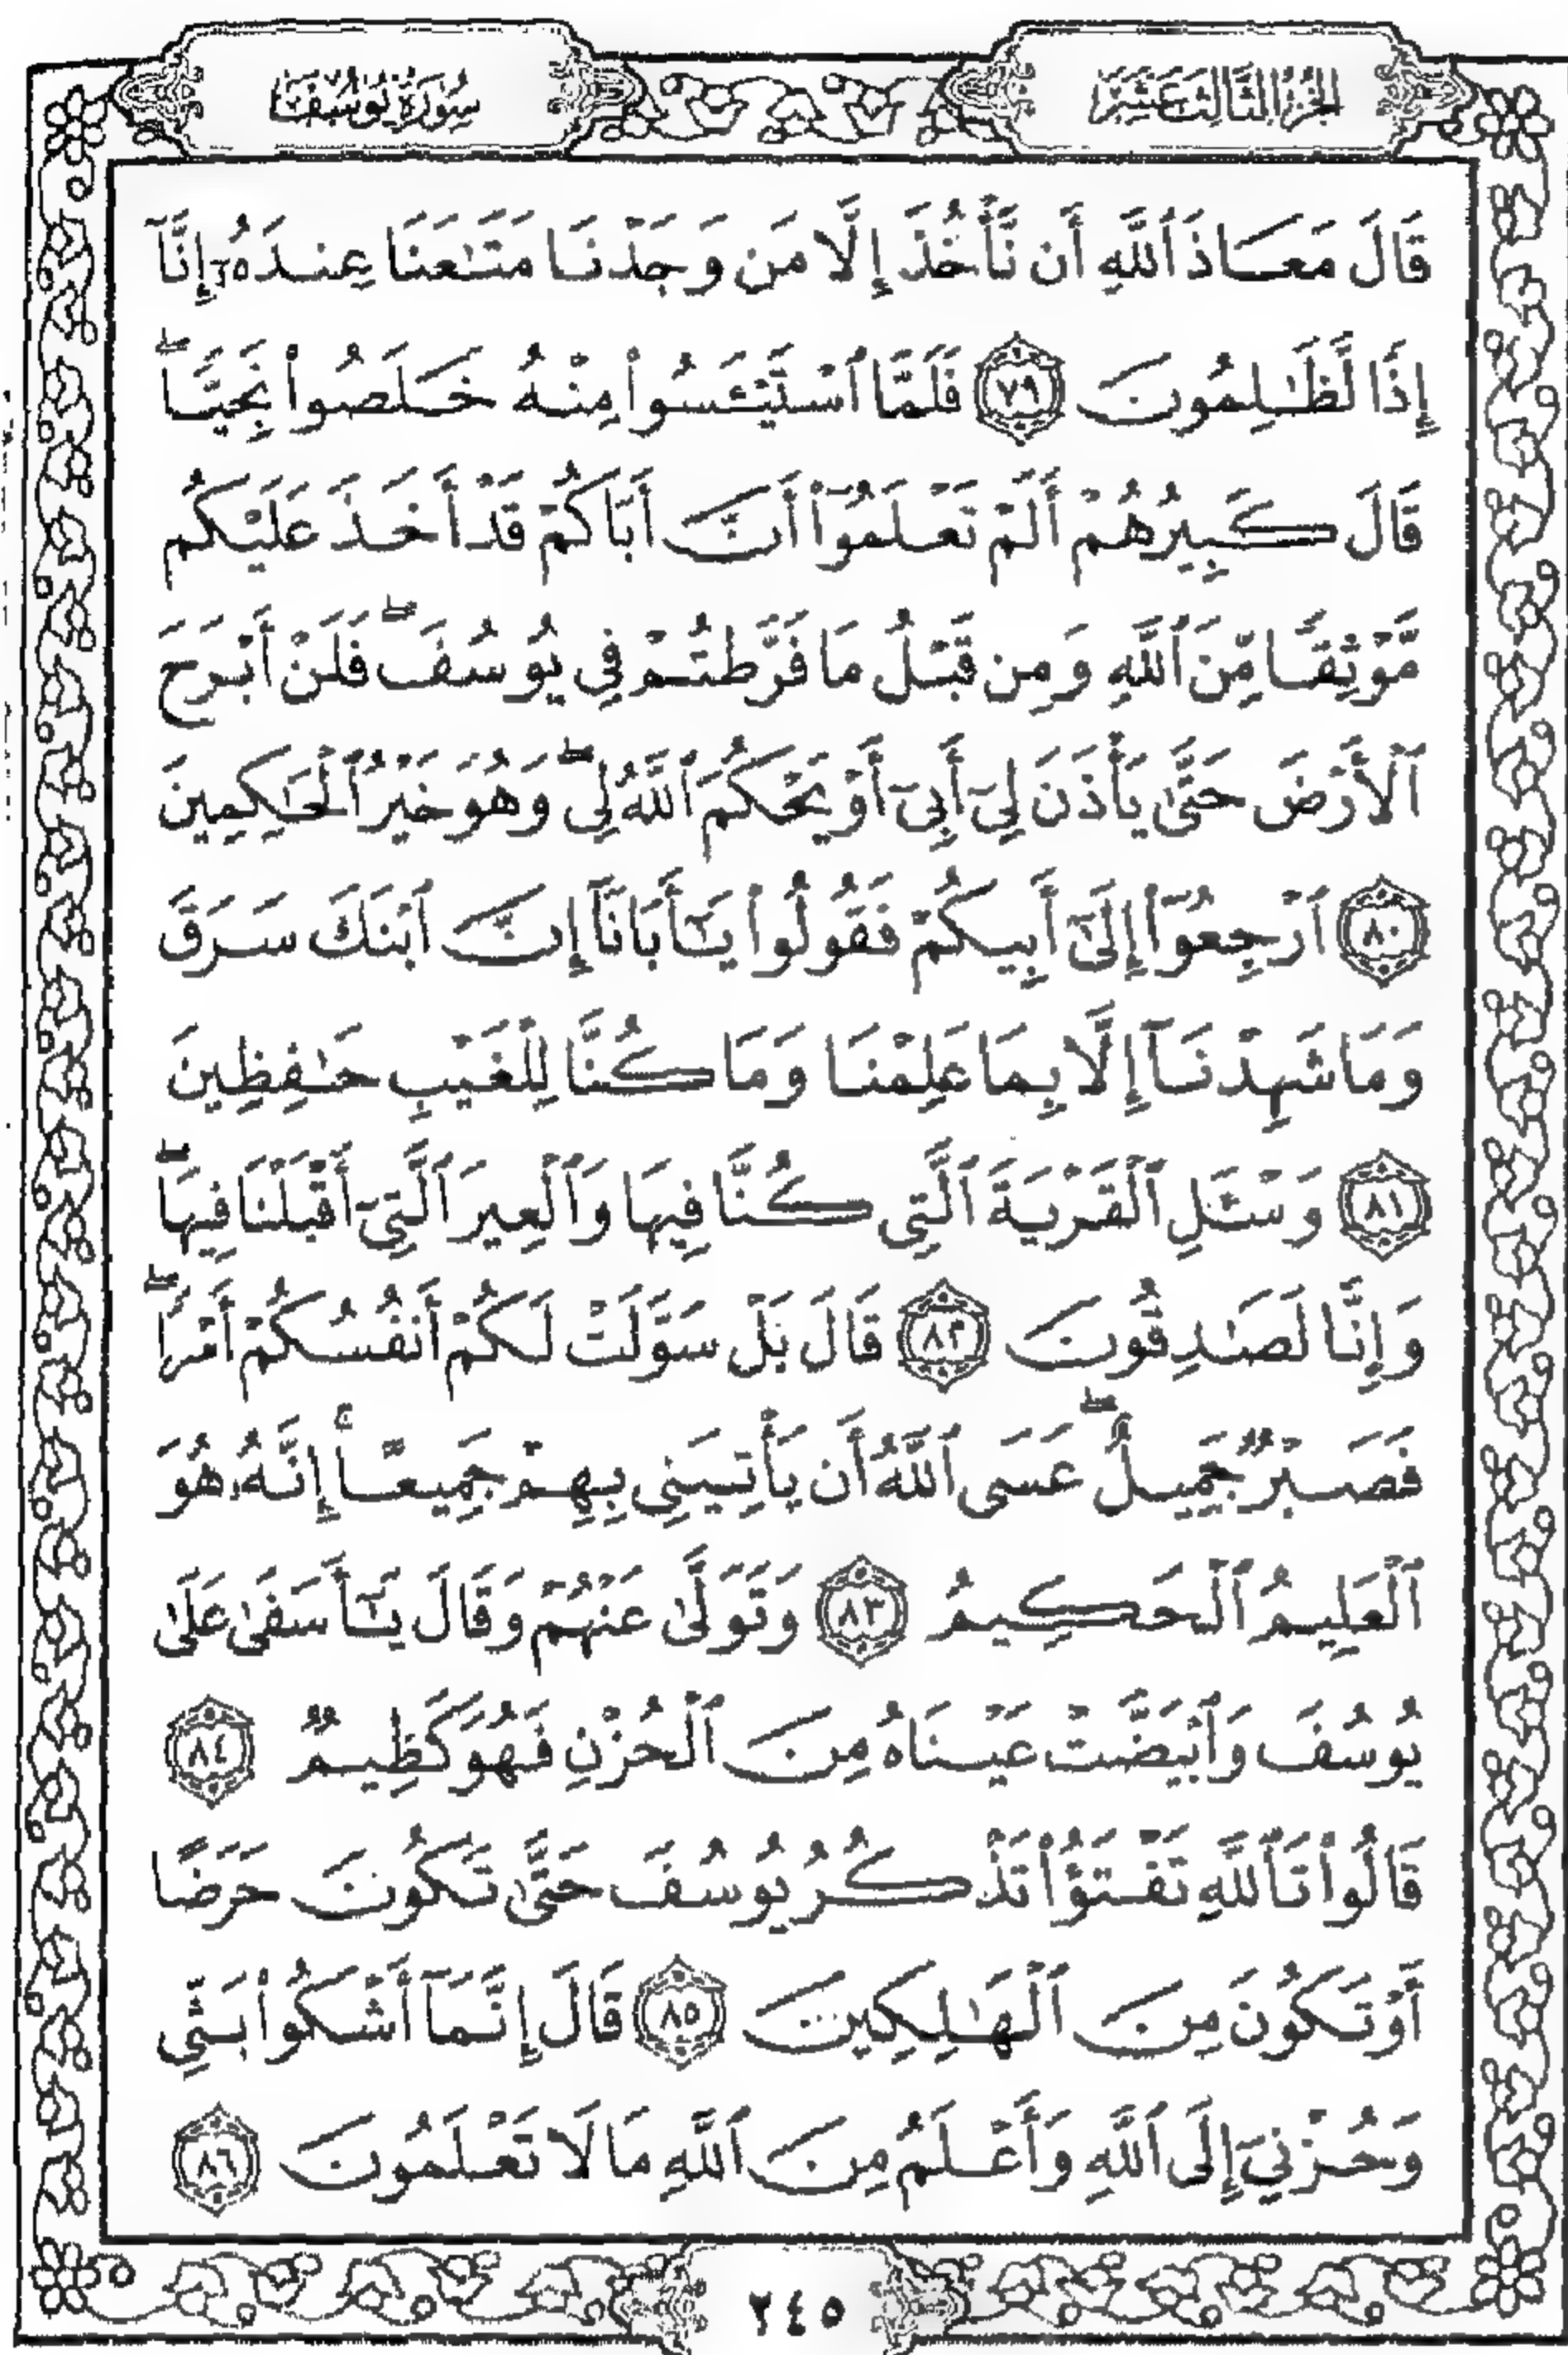 الجزء الثالث عشر
سورة يوسف
قَالَ مَعَاذَ ٱللَّهِ أَن نَّأْخُذَ إِلَّا مَن وَجَدْنَا مَتَـٰعَنَا عِندَهُۥٓ إِنَّآ
إِذًا لَّظَـٰلِمُونَ ٧٩ فَلَمَّا ٱسْتَيْـَٔسُوا۟ مِنْهُ خَلَصُوا۟ نَجِيًّا ۖ
قَالَ كَبِيرُهُمْ أَلَمْ تَعْلَمُوٓا۟ أَنَّ أَبَاكُمْ قَدْ أَخَذَ عَلَيْكُم
مَّوْثِقًا مِّنَ ٱللَّهِ وَمِن قَبْلُ مَا فَرَّطتُمْ فِى يُوسُفَ ۖ فَلَنْ أَبْرَحَ
ٱلْأَرْضَ حَتَّىٰ يَأْذَنَ لِىٓ أَبِىٓ أَوْ يَحْكُمَ ٱللَّهُ لِى ۖ وَهُوَ خَيْرُ ٱلْحَـٰكِمِينَ
٨٠ ٱرْجِعُوٓا۟ إِلَىٰٓ أَبِيكُمْ فَقُولُوا۟ يَـٰٓأَبَانَآ إِنَّ ٱبْنَكَ سَرَقَ
وَمَا شَهِدْنَآ إِلَّا بِمَا عَلِمْنَا وَمَا كُنَّا لِلْغَيْبِ حَـٰفِظِينَ
٨١ وَسْـَٔلِ ٱلْقَرْيَةَ ٱلَّتِى كُنَّا فِيهَا وَٱلْعِيرَ ٱلَّتِىٓ أَقْبَلْنَا فِيهَا ۖ
وَإِنَّا لَصَـٰدِقُونَ ٨٢ قَالَ بَلْ سَوَّلَتْ لَكُمْ أَنفُسُكُمْ أَمْرًا ۖ
فَصَبْرٌ جَمِيلٌ ۖ عَسَى ٱللَّهُ أَن يَأْتِيَنِى بِهِمْ جَمِيعًا ۚ إِنَّهُۥ هُوَ
ٱلْعَلِيمُ ٱلْحَكِيمُ ٨٣ وَتَوَلَّىٰ عَنْهُمْ وَقَالَ يَـٰٓأَسَفَىٰ عَلَىٰ
يُوسُفَ وَٱبْيَضَّتْ عَيْنَاهُ مِنَ ٱلْحُزْنِ فَهُوَ كَظِيمٌ ٨٤
قَالُوا۟ تَٱللَّهِ تَفْتَؤُا۟ تَذْكُرُ يُوسُفَ حَتَّىٰ تَكُونَ حَرَضًا
أَوْ تَكُونَ مِنَ ٱلْهَـٰلِكِينَ ٨٥ قَالَ إِنَّمَآ أَشْكُوا۟ بَثِّى
وَحُزْنِىٓ إِلَى ٱللَّهِ وَأَعْلَمُ مِنَ ٱللَّهِ مَا لَا تَعْلَمُونَ ٨٦
٢٤٥